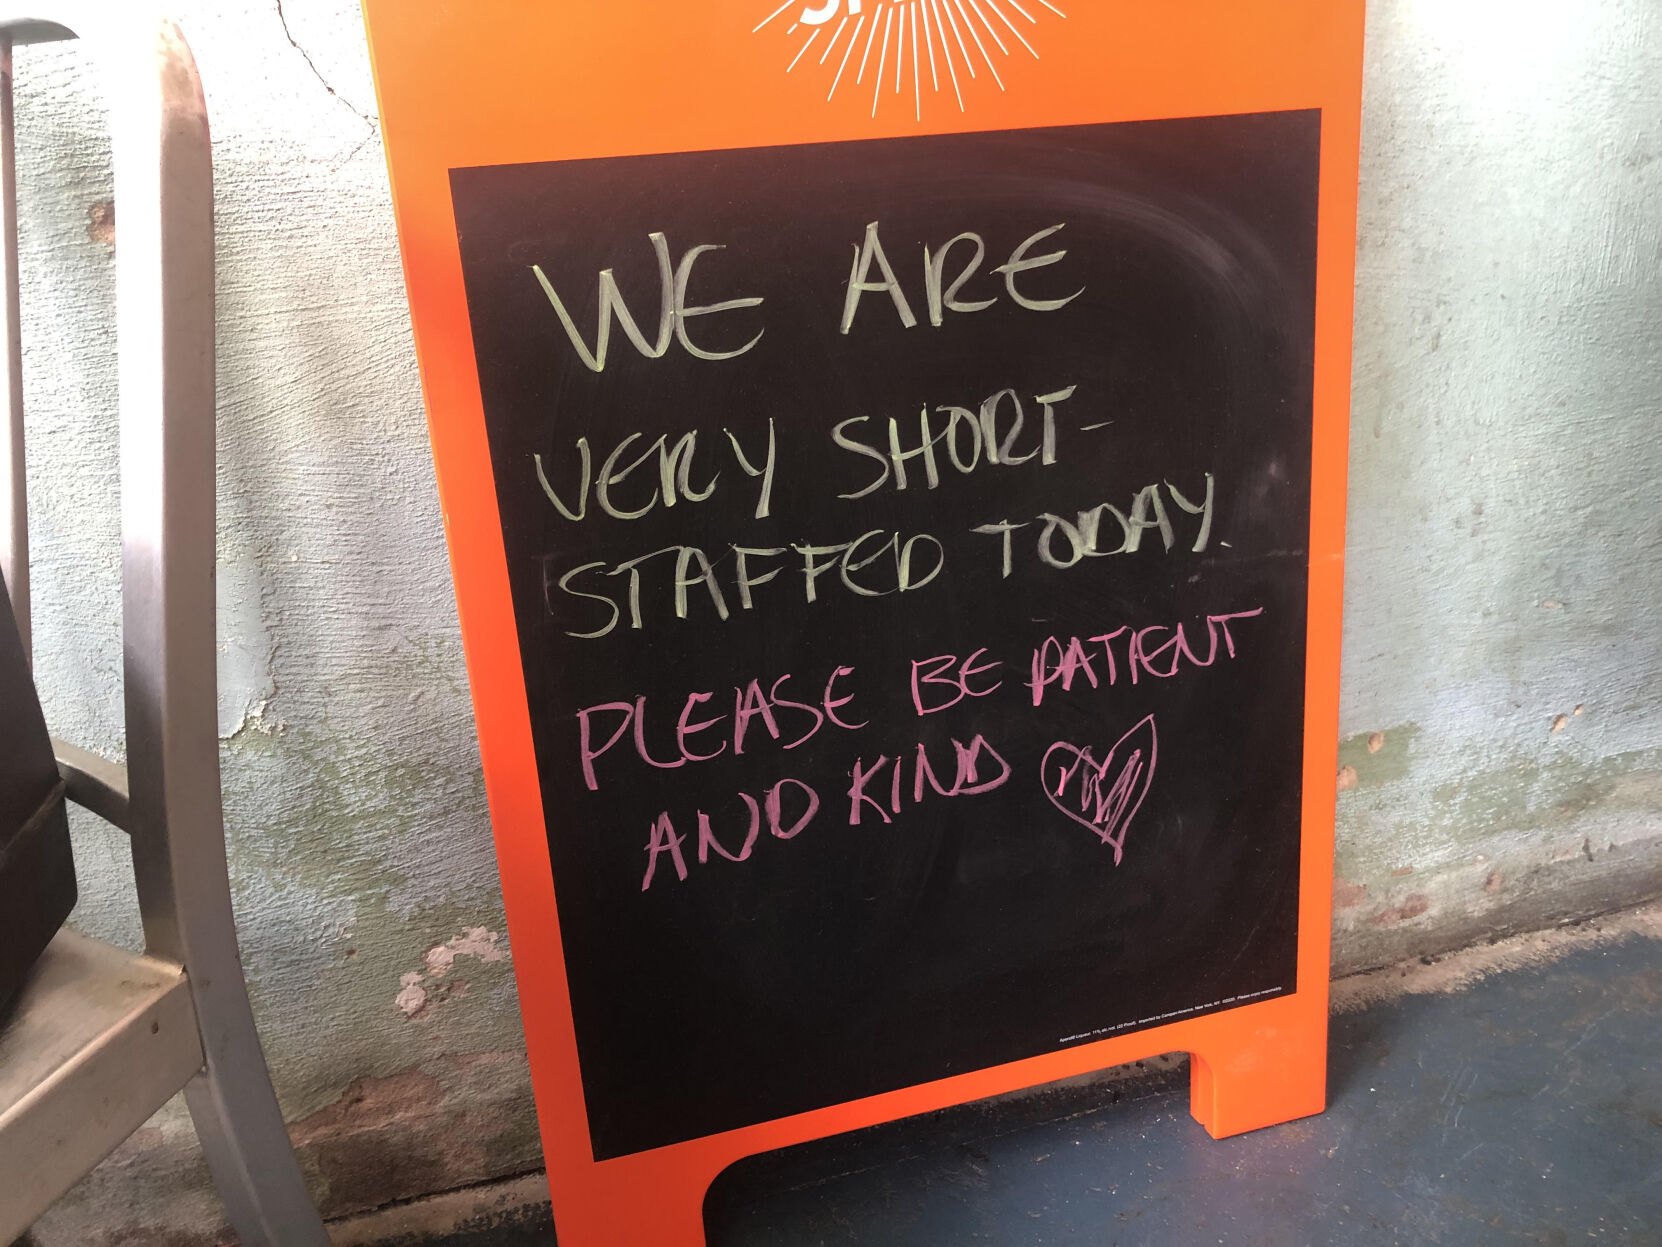 WE ARE
VERY SHORT-
STAFFED TODAY.
PLEASE BE PATIENT
AND KIND
Aperol® Liqueur. 11% alc./vol. (22 Proof). Imported by Campari America, New York, NY. ©2020. Please enjoy responsibly.